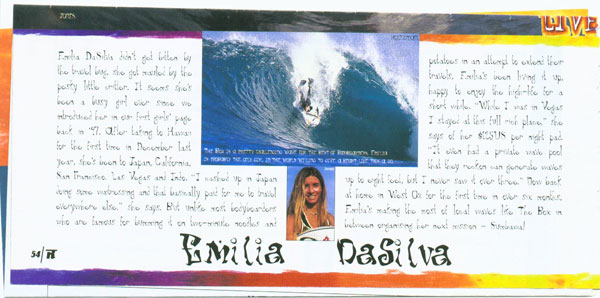 LIVE
Emilia DaSilva didn't get bitten by
the travel bug, she got mauled by the
pesky little critter. It seems she's
been a busy girl ever since we
introduced her in our first girls' page
back in '97. After taking to Hawaii
for the first time in December last
year, she's been to Japan, California,
San Francisco, Las Vegas and Indo. "I washed up in Japan
doing some waitressing and that basically paid for me to travel
everywhere else," she says. But unlike most bodyboarders
who are famous for bumming it on two-minute noodles and
The Box is a pretty challenging wave for the best of bodyboarders. Emilia
is probably the only girl in the world willing to give a heavy like this a go.
potatoes in an attempt to extend their
travels, Emilia's been living it up,
happy to enjoy the high-life for a
short while. "While I was in Vegas
I stayed at this full mad place," she
says of her $125US per night pad.
"It even had a private wave pool
that they reckon can generate waves
up to eight foot, but I never saw it over three." Now back
at home in West Oz for the first time in over six months,
Emilia's making the most of local waves like The Box in
between organising her next mission – Sumbawa!
54/
Emilia DaSilva